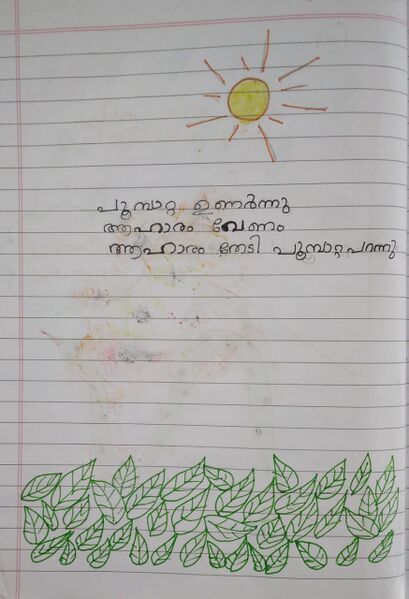 പൂമ്പാറ്റ ഉണർന്നു
ആഹാരം വേണം
ആഹാരം തേടി പൂമ്പാറ്റപറന്നു